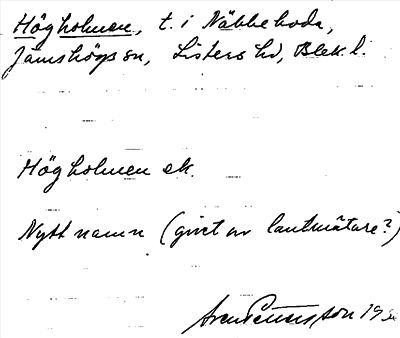 Högholmen, t. i Näbbeboda,
Jämshögs sn, Listers hd, Blek. l.
Högholmen ek.
Nytt namn (givet av lantmätare?)
Sven Petersson 19